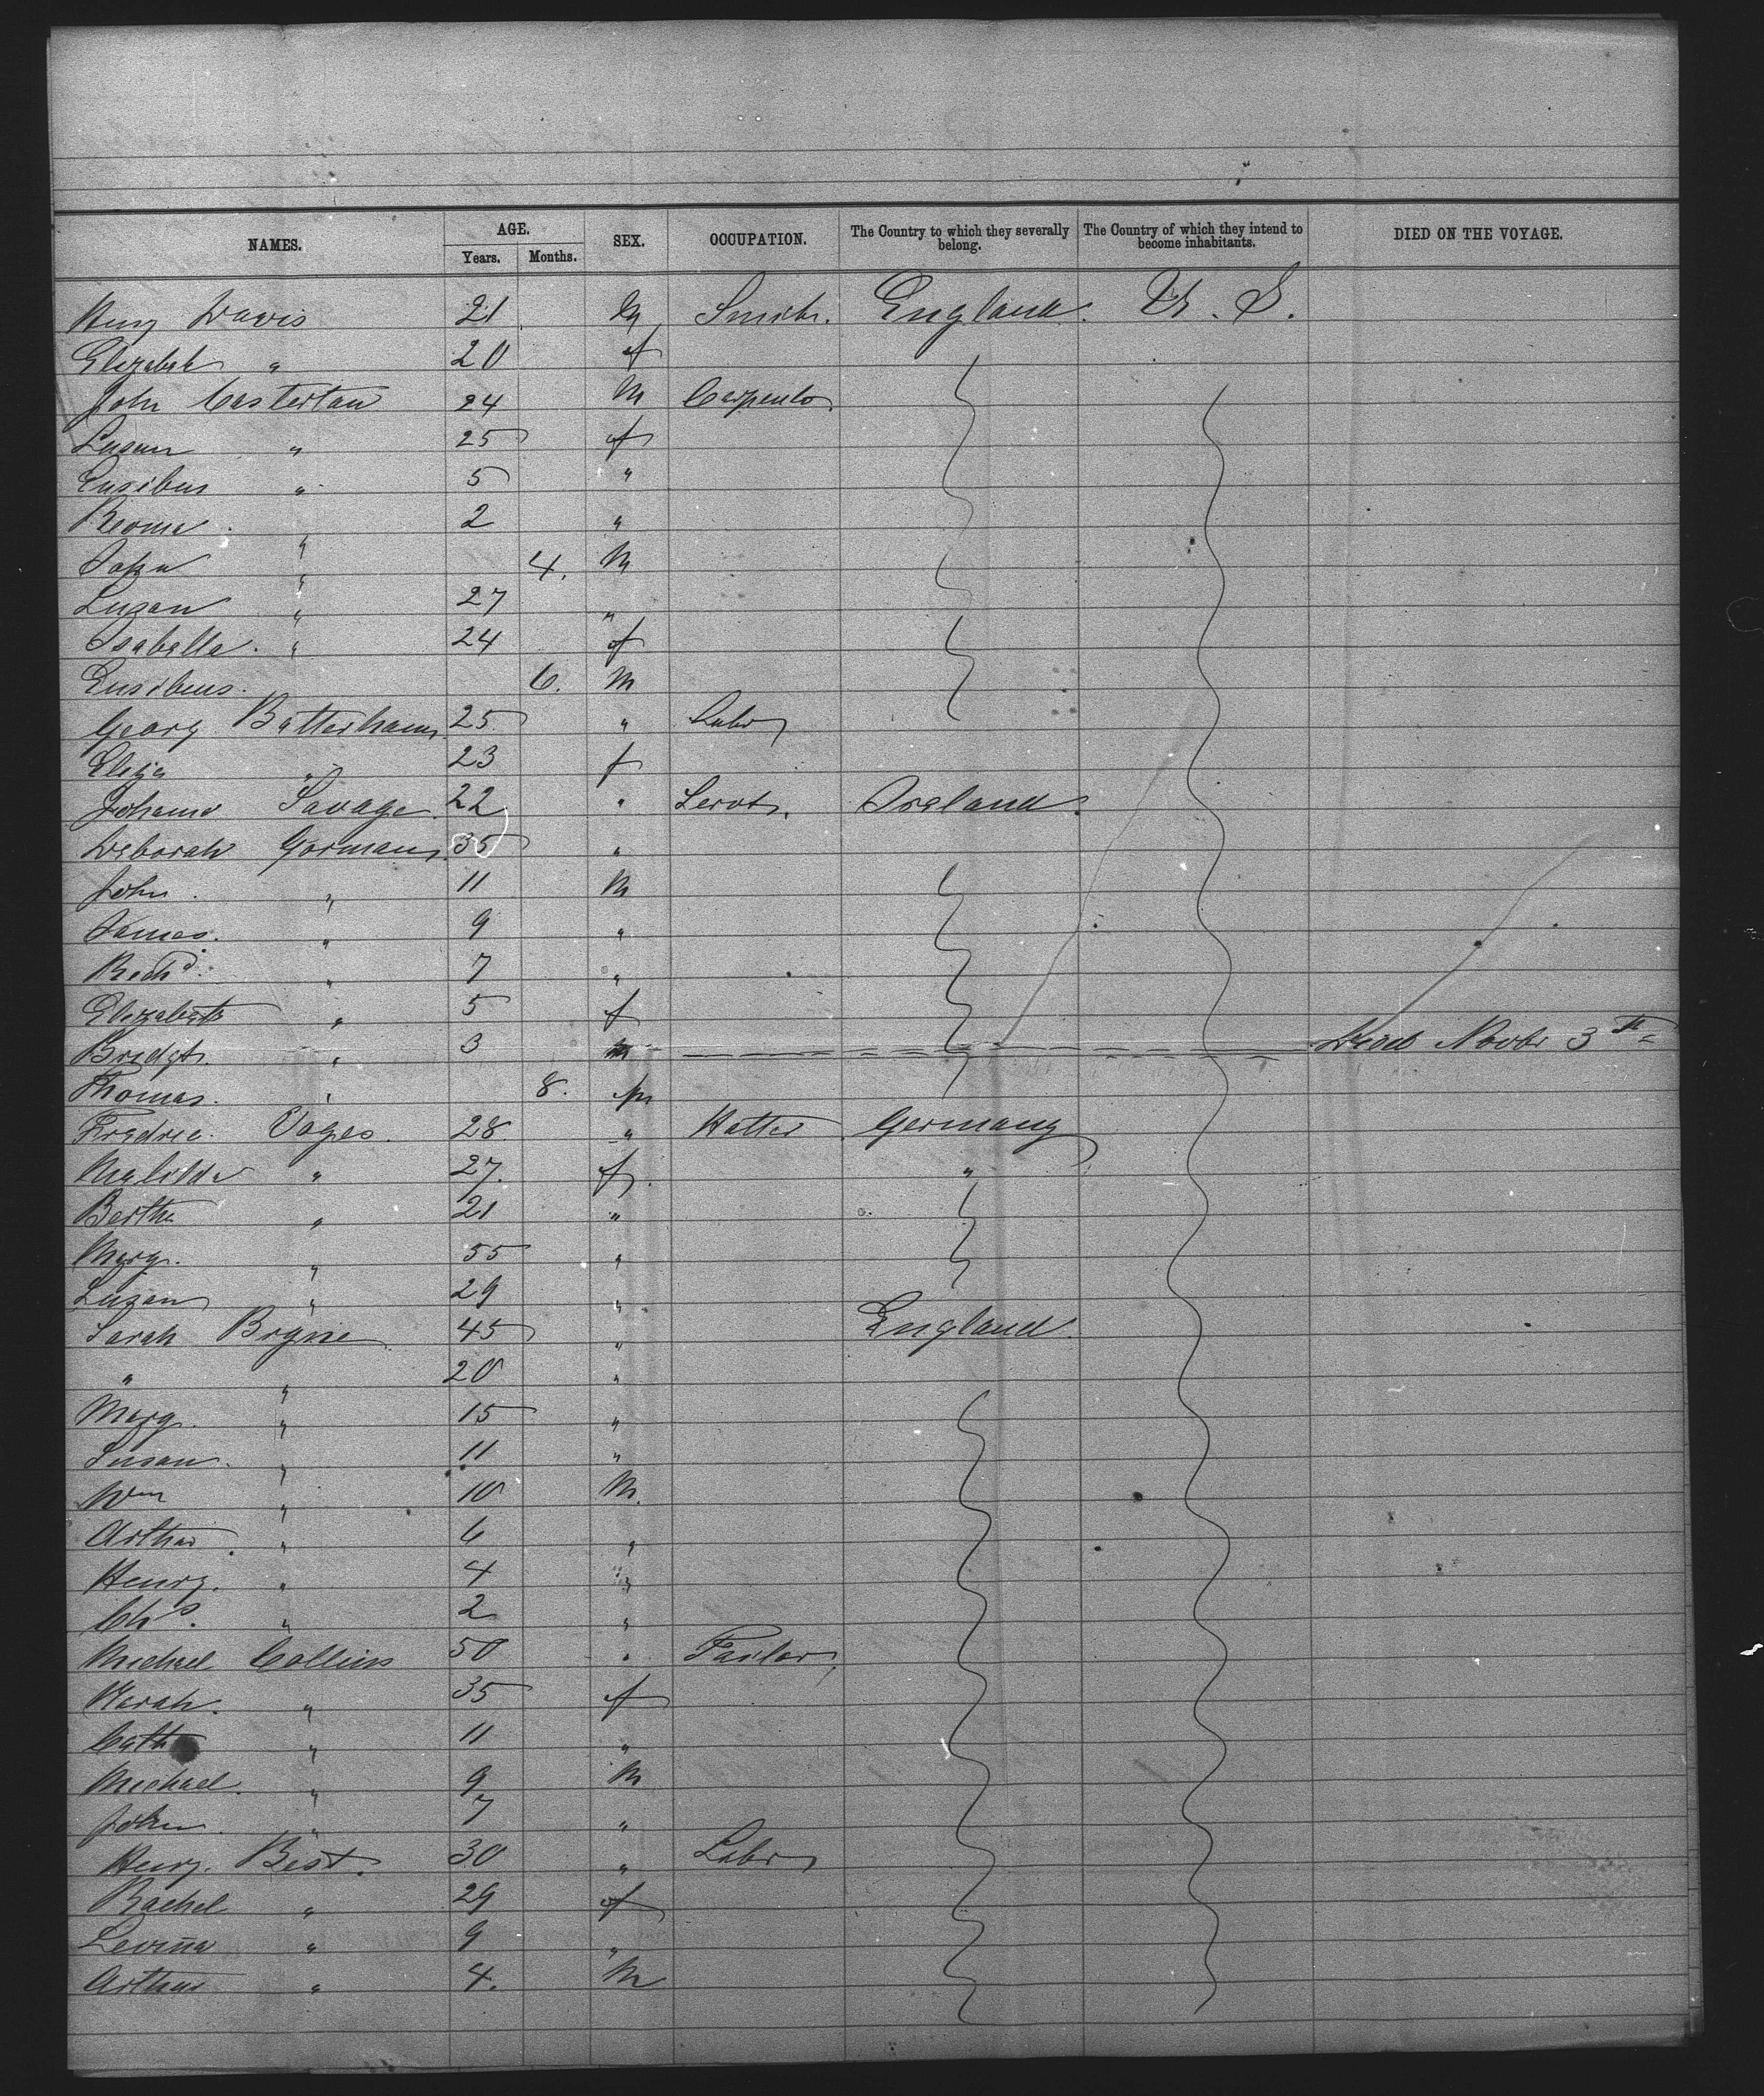 NAMES. AGE. SEX. OCCUPATION. The Country to which they severally belong. The Country of which they intend to become inhabitants. DIED ON THE VOYAGE.
Years. Months.
Henry Davis 21 M Smith. England. U. S.
Elizabeth " 20 f
John Castertan 24 M Carpenter
Susan " 25 f
Eusibus " 5 "
" 2 "
John " 4. M
" 27 "
Isabella. " 24 f
Eusibeus. 6. M
Georg Batterham 25 " Labr
Eliza " 23 f
Johanna Savage. 22 " Servt. Ireland.
Deborah Gorman 35 "
John. " 11 M
James. " 9 "
Richd. " 7 "
Elizabeth " 5 f
Bridgt. " 3 Died Novbr 3th
Thomas. " 8. m
Fredric. Vages. 28 " Hatter Germany
Matilda " 27. f. "
Bertha " 21 "
Marg. " 55 "
Susan " 29 "
Sarah Brgne 45 " England.
" " 20 "
Marg. " 15 "
Susan. " 11 "
Wm " 10 M.
Arthur. " 6 "
Henry. " 4 "
Chs. " 2 "
Michael Collins 50 " Tailor
" 35 f
Cath " 11 "
Michael. " 9 M
John. " 7 "
Henry. Best. 30 " Labr
Rachel " 29 f
Levina " 9 "
Arthur " 4. M